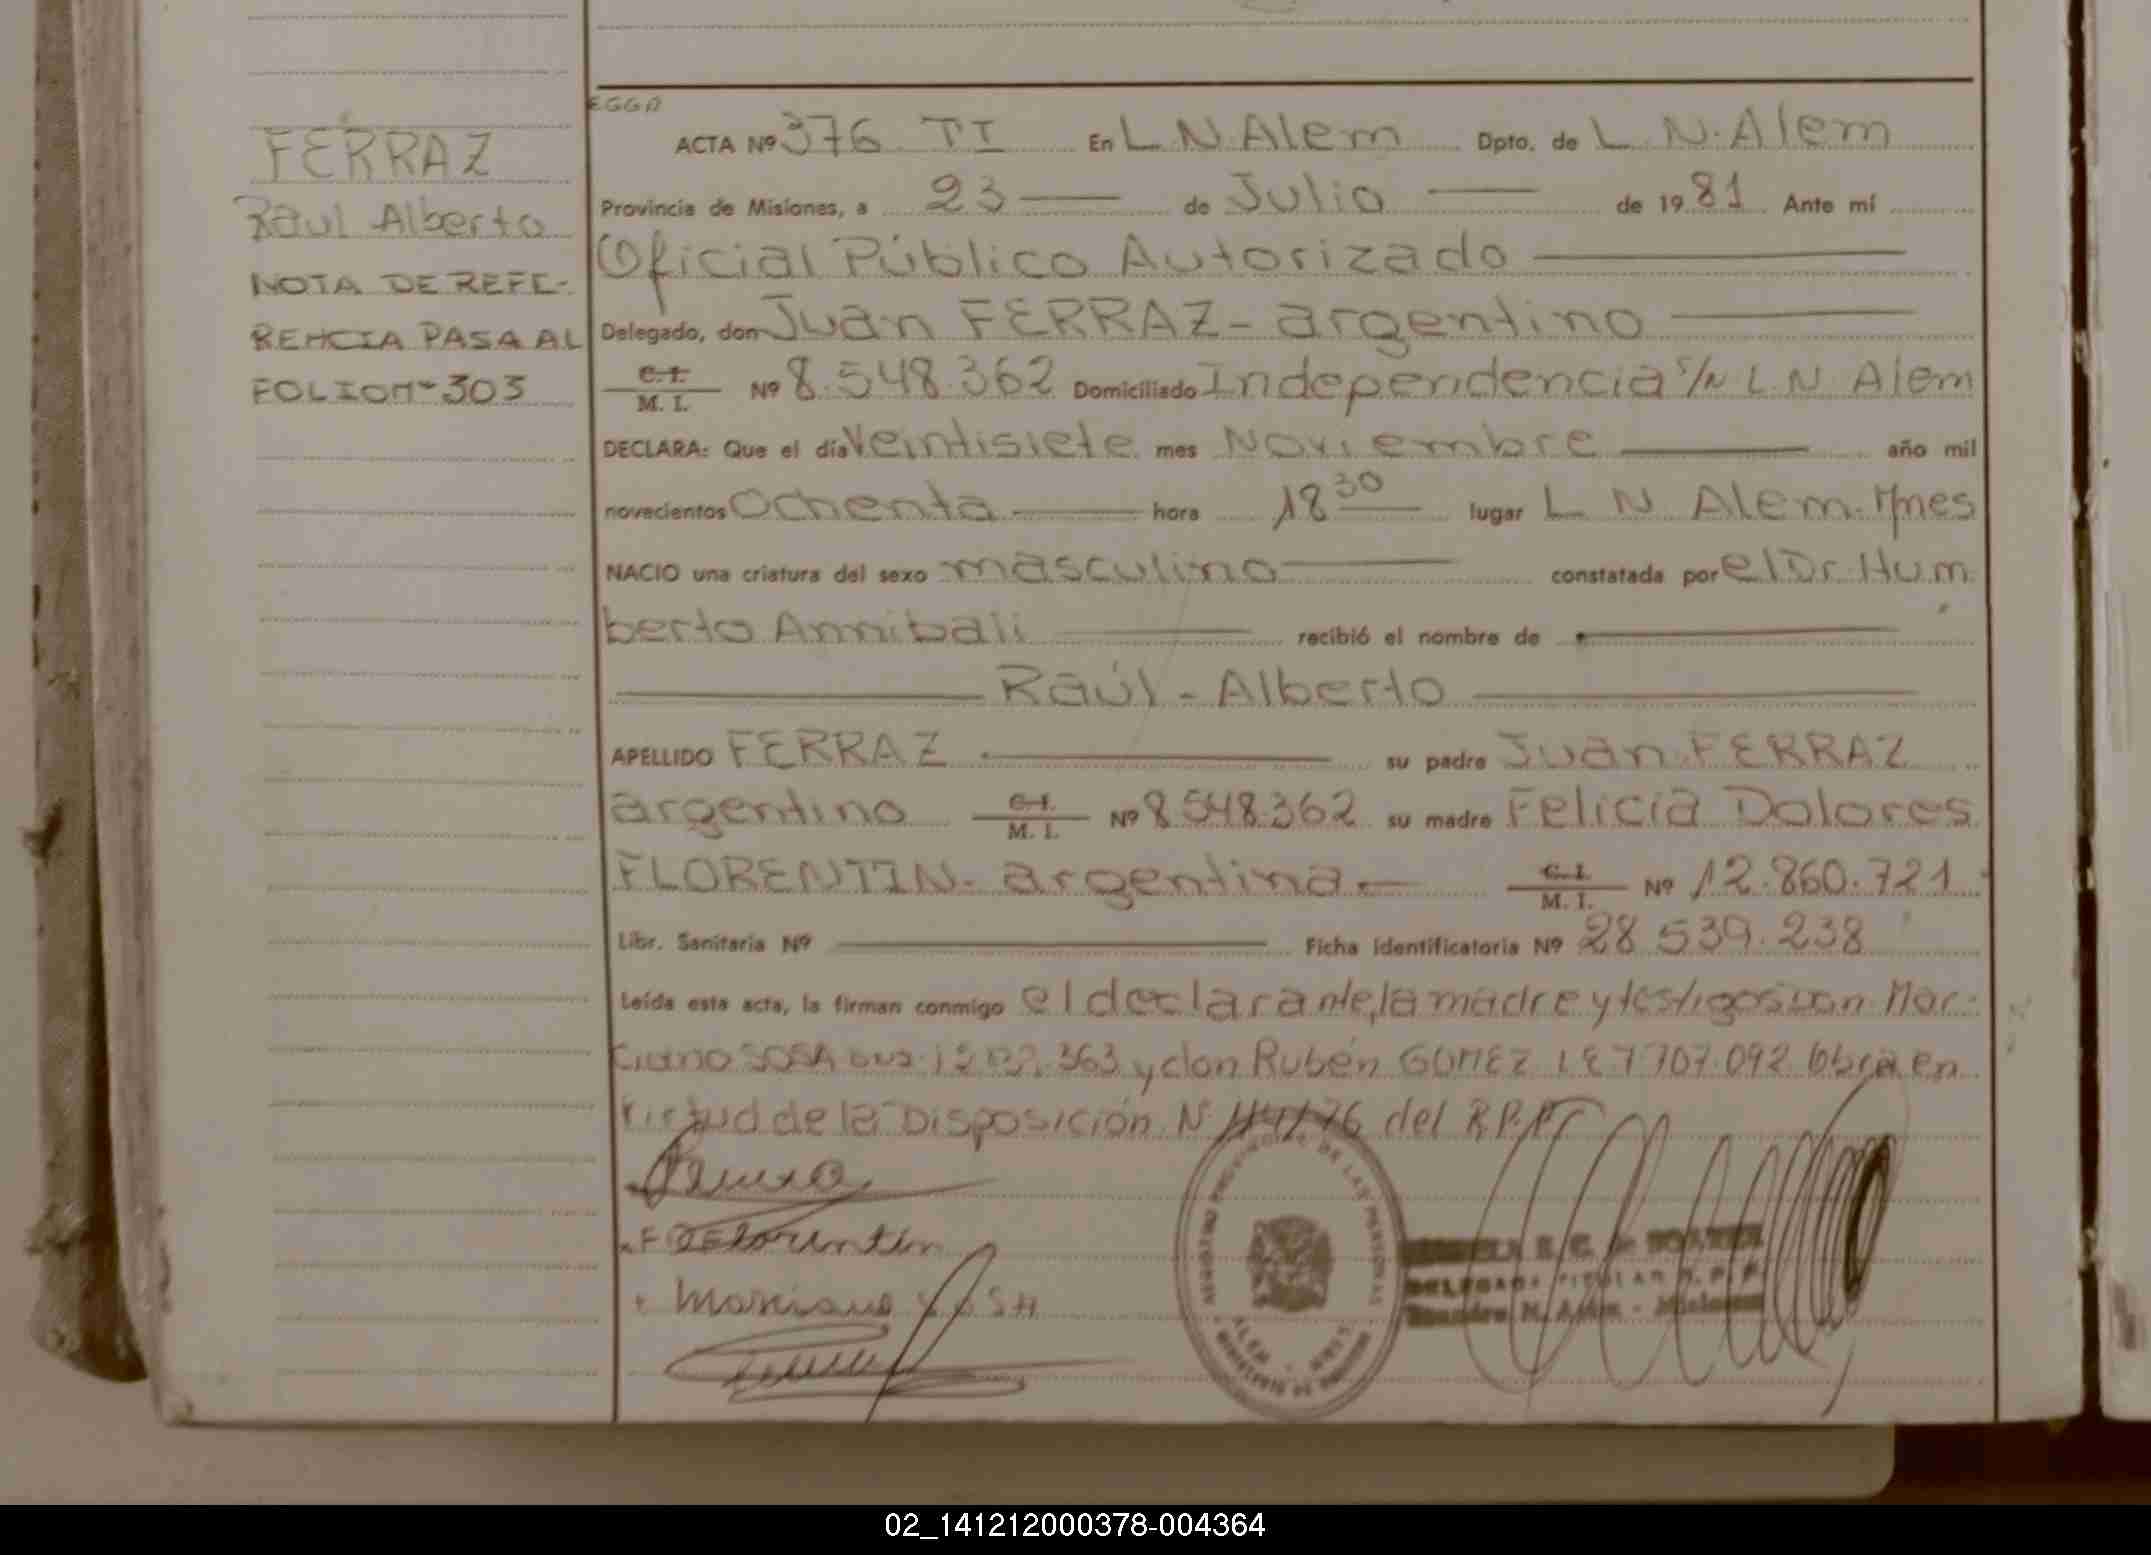 EGGA
FERRAZ
Raul Alberto
NOTA DE REFE-
RENCIA PASA AL
FOLIO Nº 303
ACTA Nº 376 TI En L N Alem Dpto. de L. N. Alem
Provincia de Misiones, a 23 de Julio de 1981 Ante mí
Oficial Público Autorizado
Delegado, don Juan FERRAZ - argentino
C. I. / M. I. Nº 8.548.362 Domiciliado Independencia S/N L. N. Alem
DECLARA: Que el día Veintisiete mes Noviembre año mil
novecientos Ochenta hora 18 30 lugar L N Alem. Mnes
NACIO una criatura del sexo masculino constatada por el Dr. Hum
berto Annibali recibió el nombre de
Raúl - Alberto
APELLIDO FERRAZ su padre Juan FERRAZ
argentino C. I. / M. I. Nº 8.548.362 su madre Felicia Dolores
FLORENTIN - argentina C. I. / M. I. Nº 12.860.721
Libr. Sanitaria Nº Ficha Identificatoria Nº 28.539.238
Leída esta acta, la firman conmigo el declarante, la madre y testigos Don Mar-
ciano SOSA 363 y don Rubén GOMEZ LE 7 707.092 labra en
virtud de la Disposición Nº 114/76 del R.P.P
F D Florentin
Marciano SOSA
REGISTRO PROVINCIAL DE LAS PERSONAS
ALEM - MNES
MINISTERIO DE GOBIERNO
E. G. de
DELEGADA TITULAR R. P. P.
Leandro N. Alem - Misiones
02_141212000378-004364